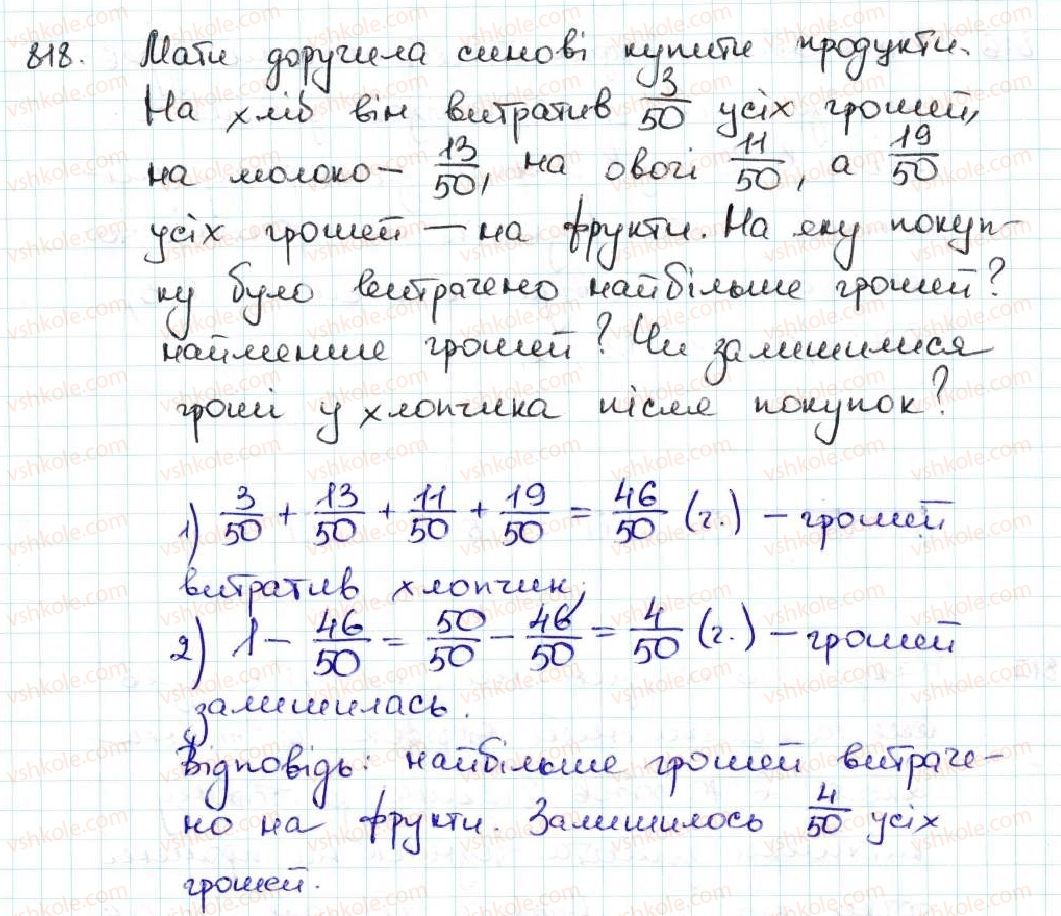 818. Мати доручила синові купити продукти.
На хліб він витратив 3/50 усіх грошей,
на молоко — 13/50, на овочі 11/50, а 19/50
усіх грошей — на фрукти. На яку покуп-
ку було витрачено найбільше грошей?
найменше грошей? Чи залишилися
гроші у хлопчика після покупок?
1) 3/50 + 13/50 + 11/50 + 19/50 = 46/50 (г.) – грошей
витратив хлопчик;
2) 1 – 46/50 = 50/50 – 46/50 = 4/50 (г.) – грошей
залишилась.
Відповідь: найбільше грошей витраче-
но на фрукти. Залишилось 4/50 усіх
грошей.